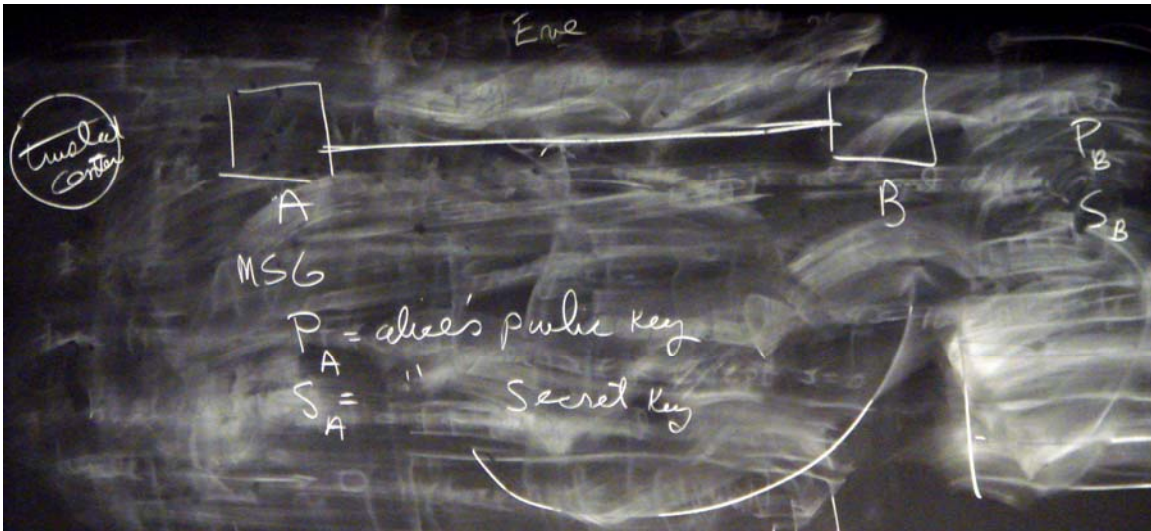 Eve
trusted
center
A
B
P_B
S_B
MSG
P_A = alice's public key
S_A = " Secret key